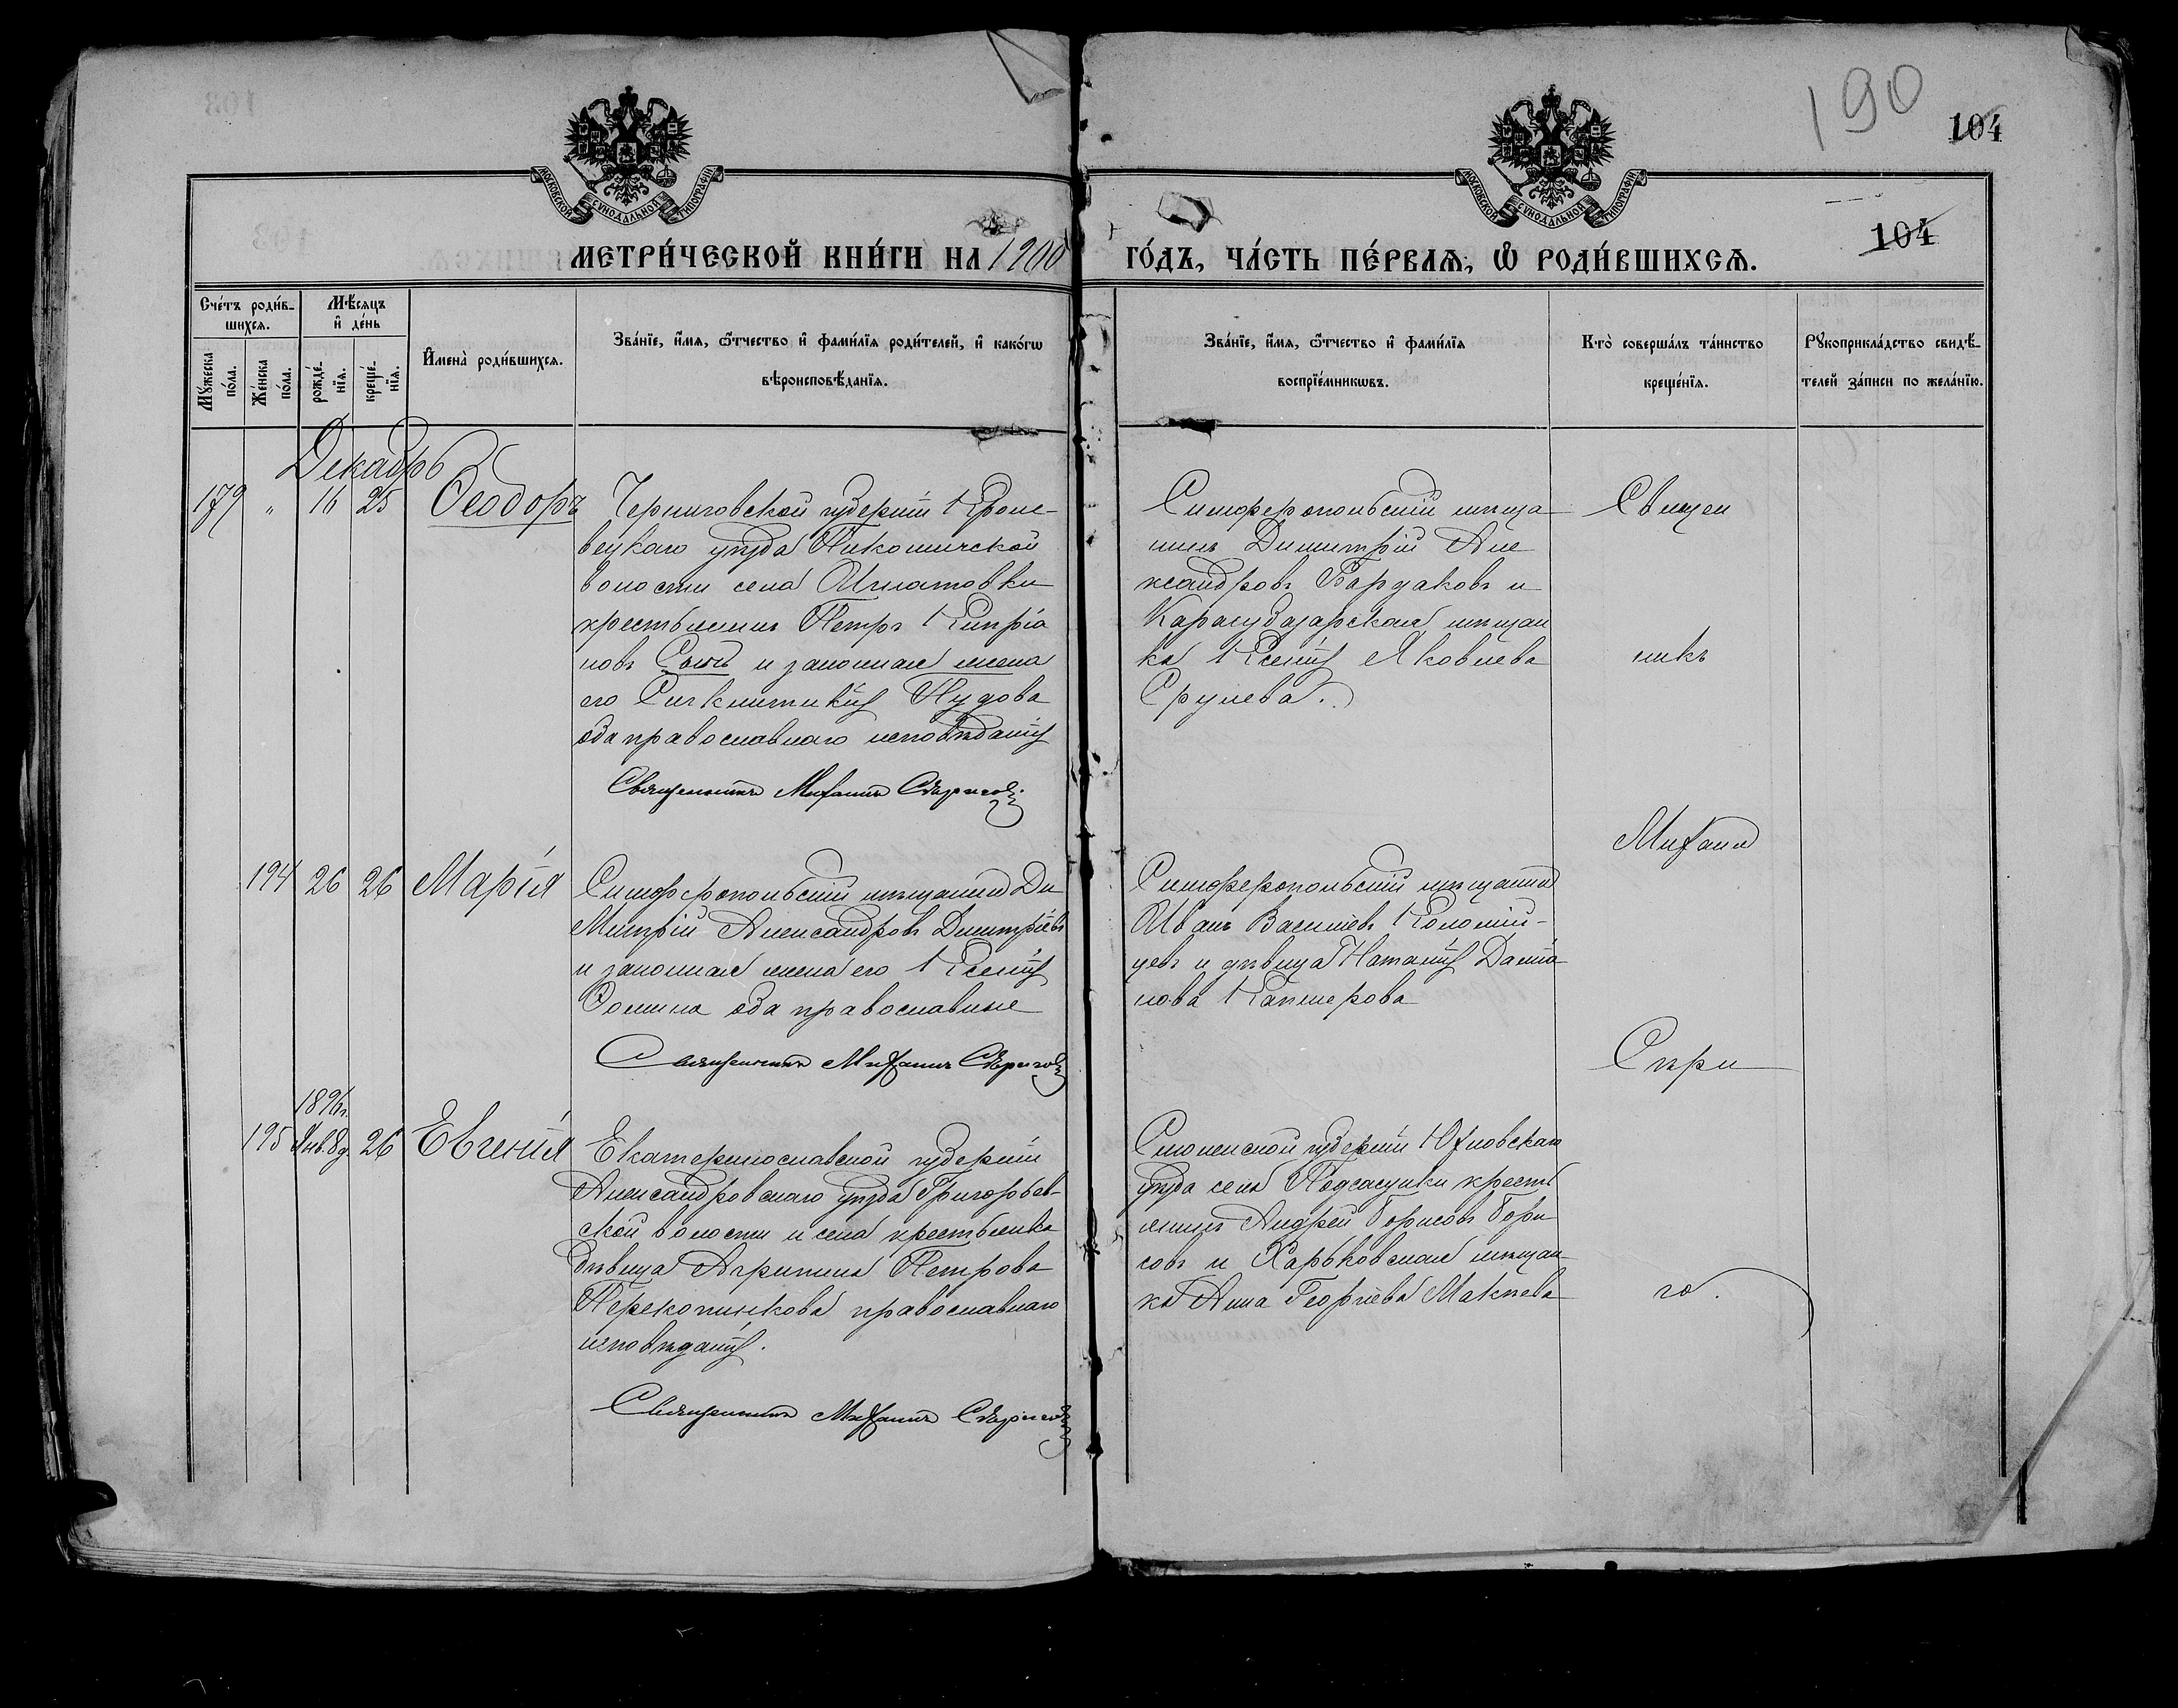 190
104
МОСКОВСКОЙ СѴНОДАЛЬНОЙ ТИПОГРАФІИ
МОСКОВСКОЙ СѴНОДАЛЬНОЙ ТИПОГРАФІИ
104
МЕТРИ́ЧЕСКОЙ КНИ́ГИ НА 1900
ГО́ДЪ, ЧА́СТЬ ПЕ́РВАѦ, Ѡ҆ РОДИ́ВШИХСѦ.
Сче́тъ роди́в-
шихсѧ.
Мꙋ́жеска по́ла.
Же́нска по́ла.
Мѣ́сѧцъ
и҆ де́нь
рожде́-
нїѧ.
креще́-
нїѧ.
И҆мена̀ роди́вшихсѧ.
Зва́нїе, и҆́мѧ, ѻ҆́тчество и҆ фами́лїѧ роди́телей, и҆ како́гѡ
вѣроисповѣ́данїѧ.
Зва́нїе, и҆́мѧ, ѻ҆́тчество и҆ фами́лїѧ
воспрїе́мникѡвъ.
Кто̀ соверша́лъ та́инство
креще́нїѧ.
Рꙋкоприкла́дство свидѣ́-
телей за́писи по жела́нїю.
Декабрь
179 " 16 25 Ѳеодоръ
Черниговской губерніи Кроле-
вецкаго уѣзда
волости села Игнатовки
крестьянинъ Петръ Кипріа
новъ и законная жена
его Синклитикія Пудова
оба православнаго исповѣданія
Священникъ Михаилъ
Симферопольскій мѣща
нинъ Димитрій Але
ксандровъ Бардаковъ и
Карасубазарская мѣщан
ка Ксенія Яковлева
Срулева.
Священ
никъ
Михаил
194 26 26 Марія
Симферопольскій мѣщанинъ Ди
митрій Александровъ Димитріевъ
и законная жена его Ксенія
оба православные
Священникъ Михаилъ
Симферопольскій мѣщанинъ
Иванъ Васильевъ Коломій-
цевъ и дѣвица Наталія Даміа
нова
1896 г.
195 Янв. 8 д. 26 Евгенія
Екатеринославской губерніи
Александровскаго уѣзда Григорьев-
ской волости и села крестьянка
дѣвица Агрипина Петрова
православнаго
исповѣданія.
Священникъ Михаилъ
Смоленской губерніи Юхновскаго
уѣзда села крестья
янинъ Андрей Борисовъ Бори
совъ и Харьковская мѣщан
ка Анна Георгіева Макѣева
го.